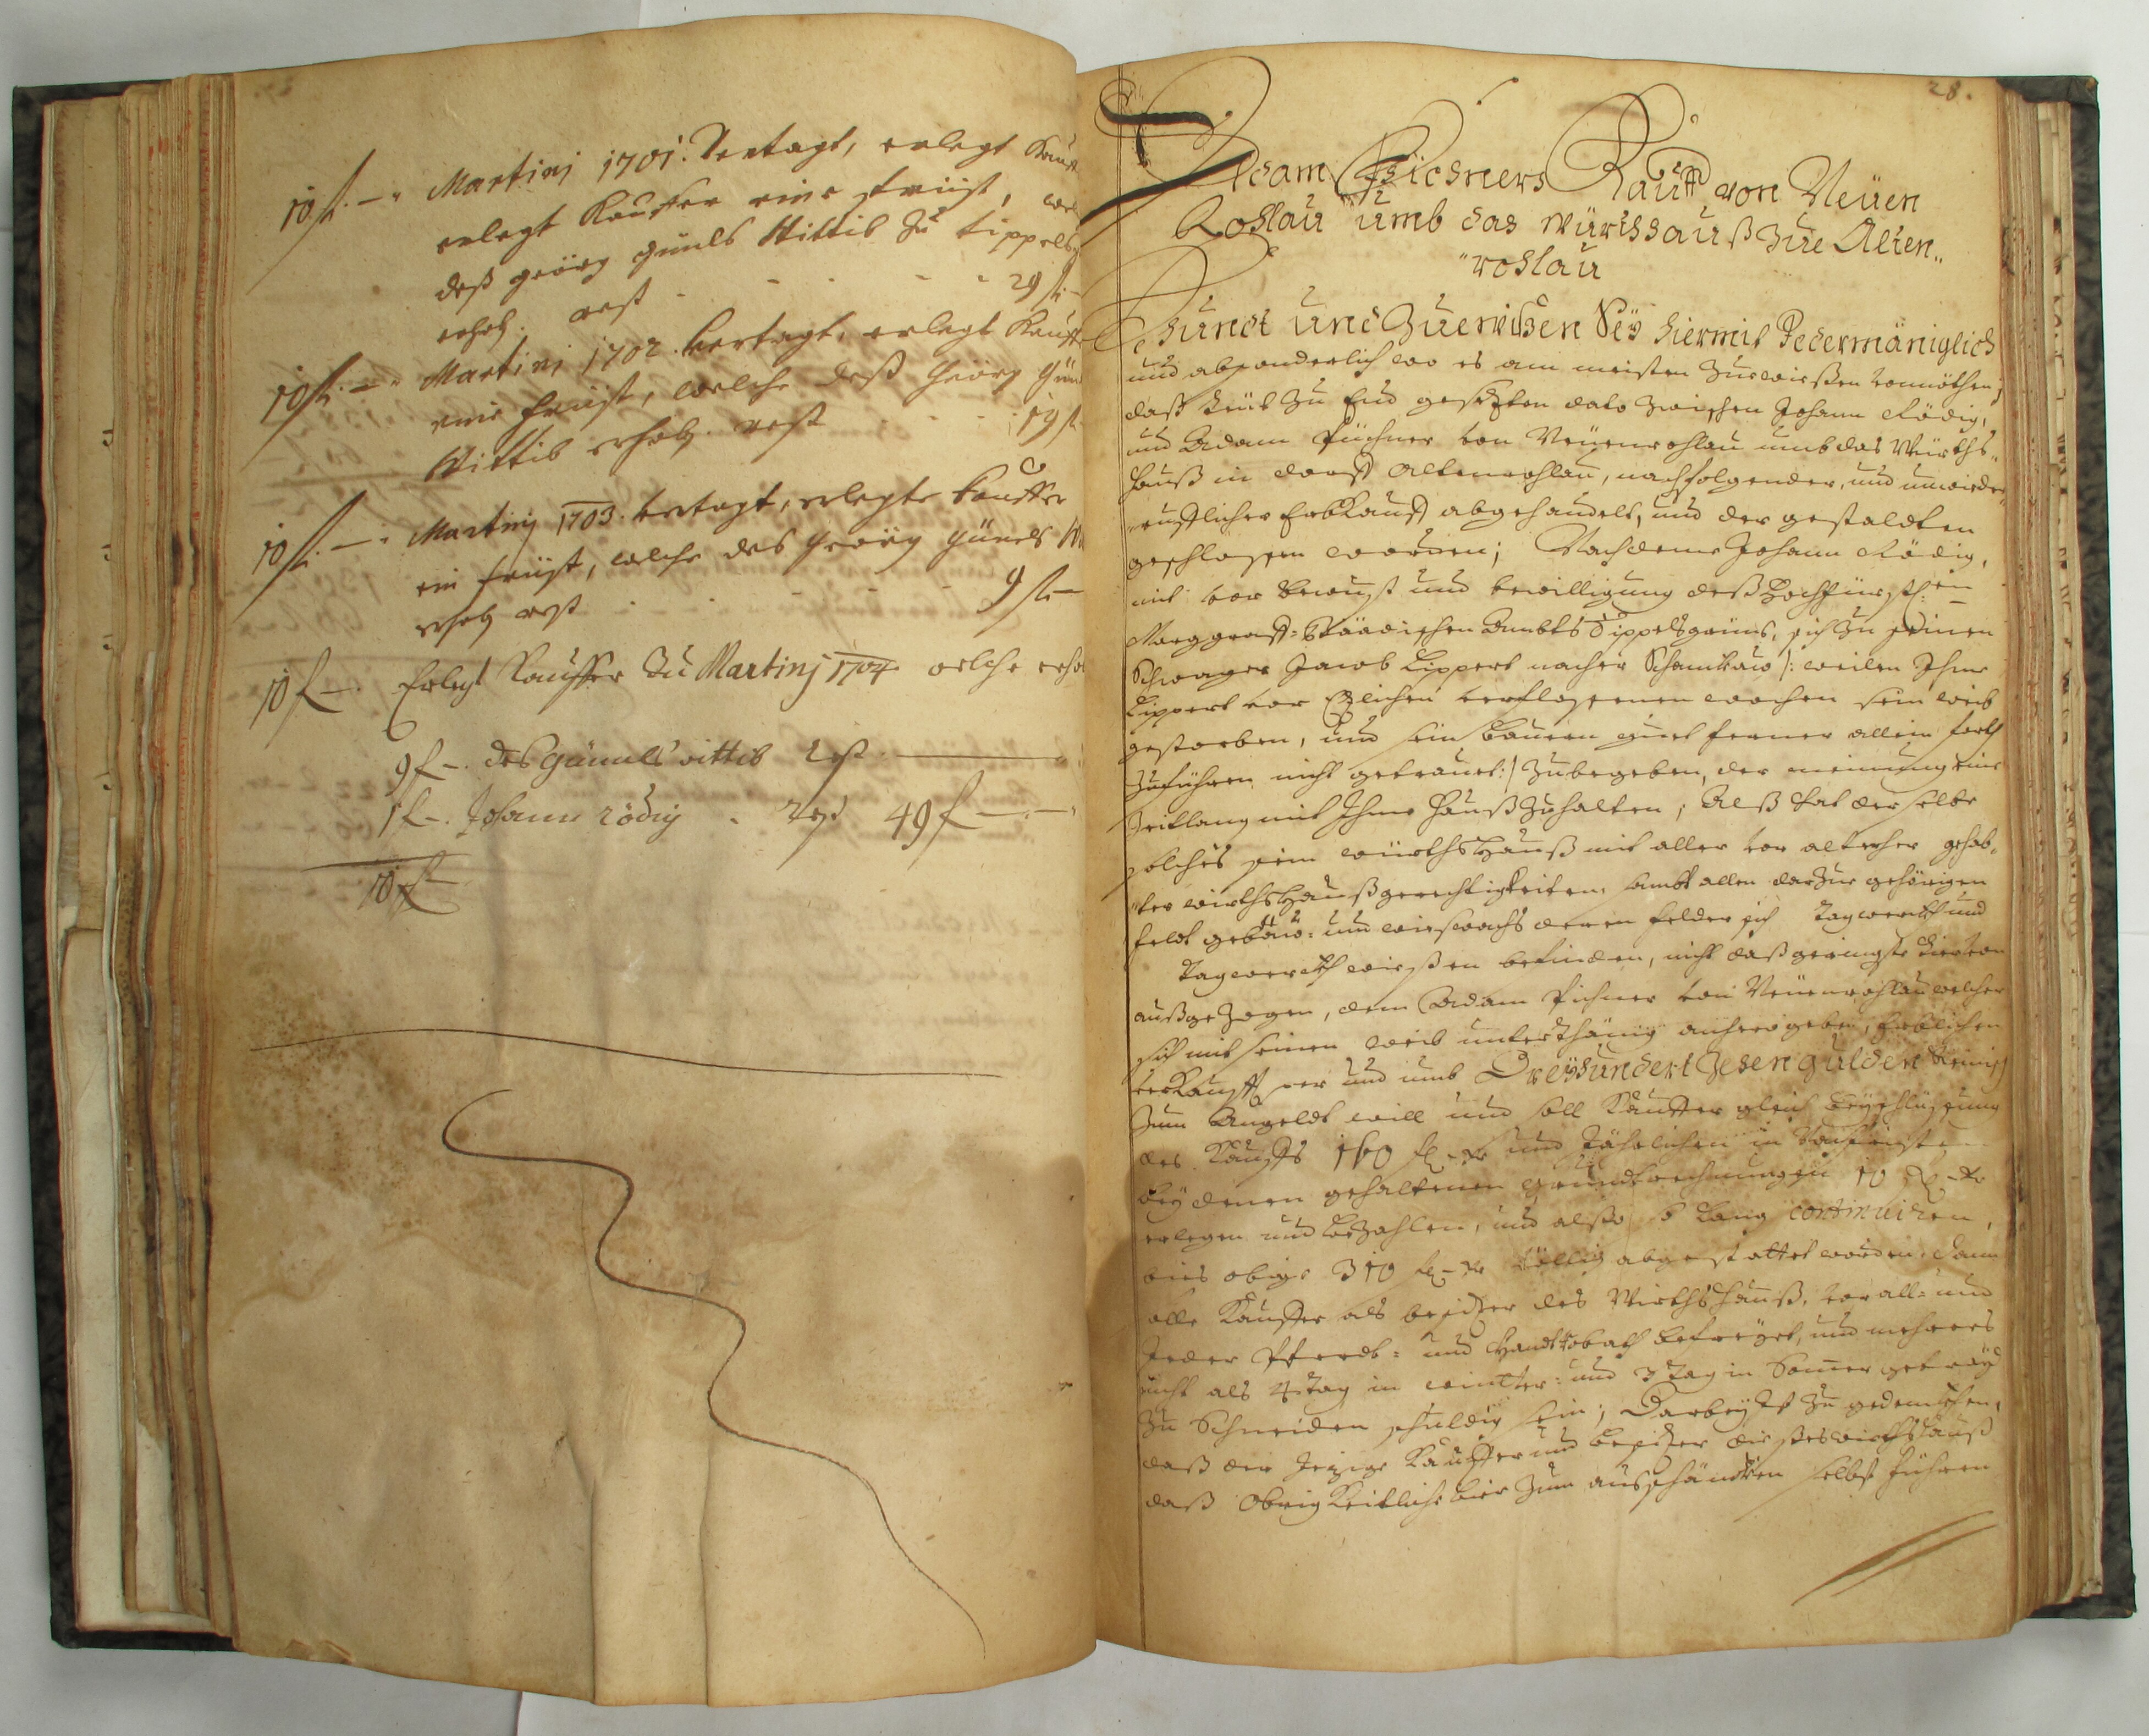 10 fl. — " Martinj 1701. Vertagt, erlegt Kauff
erlegt Kauffer eine Friist, wel
deß geörg günls Wittib zu tippels
erhob. rest - - - - 29 fl. —
10 fl. — " Martinj 1702. Vertagt, erlegt Kauff
eine Friist, welche deß Geörg Gün
Wittib erhob. rest - - - 19 fl.
10 fl. — " Martinj 1703. vertagt, erlegte Kauffer
ein Friist, welche des Geörg Günels W
erhob rest - - - - 9 fl. —
10 f —. Erlegt Kauffer Zu Martinj 1704 welche erho
9 f —. des Günnels wittib rest —
1 f —. Johann rödig - Rest 49 f — . —
10 f —
28.
Adam Pichners Kauff von Neüen
Rohlau umb das Würthshauß zue Alten„
„rohlau
Khundt und Zuewißen Seÿ hiermit Jedermäniglich
und absonderlich wo es am meisten Zuewissen vonnöthen,
daß heut zu End gesezten dato zwischen Johann Rödig,
und Adam Püchner von Neuenrohlau umb das Würths„
hauß in dorff Altenrohlau, nachfolgender, und unwieder„
„ruefflicher Erbkauff abgehandelt, und der gestaldten
geschlossen worden; Nachdeme Johann Rödig,
mit vor bewust und bewilligung deß Hochfürstl: in
Marggraff-Baadischen Ambts Tippelsgrüns, sich zu seinen
Schwager Jacob Lippert nacher Schankau /: weilen Ihme
Lippert vor Etzlichen verflossenen wochen sein weib
gestorben, und sein Bauern guet ferner allein forth
Zuführen nicht getrauet :/ Zubegeben, der meinung eine
Zeitlang mit Ihme Hauß Zuhalten; Alß hat derselbe
solches sein würthshauß mit aller vor altersher gehab„
„ter wirthshaußgerechtigkeiten, sambt allen darzue gehörigen
feldt gebäu- und wießwachs deren felder sich Tagwerckh und
Tagwerckh wiessen befinden, nicht daß geringste hiervon
außgezogen, dem Adam Pichner von Neuenrohlau welcher
sich mit seinen weib unterthänig anhero geben, Erblichen
verkaufft per und umb Dreÿhundert Zehen gulden Reinisch
Zum Angeldt will und soll Kauffer gleich beÿ schlüssung
des Kauffs 160 fl. - xr und Jährlichen in Nachfristen
beÿ denen gehaltenen grundtrechnungen 10 fl. - xr
erlegen und bezahlen, und alßo so lang continuiren,
bies obige 310 fl. - xr völlig abgestattet worden. Dann
solle Kauffer als besizer des Wirthshauß, vor all- und
Jeder Pferdt- und Handtrobath befreÿet, und mehrers
nicht als 4 tag in wintter- und 3 tag in Sommer getraÿd
zu Schneiden schuldig sein; Darbeÿ Ist zu gedenckhen,
daß der Jezige Kauffer und besizer dießes wirthshauß
daß Obrigkeitliche bier zum ausschänckhen selbst führen